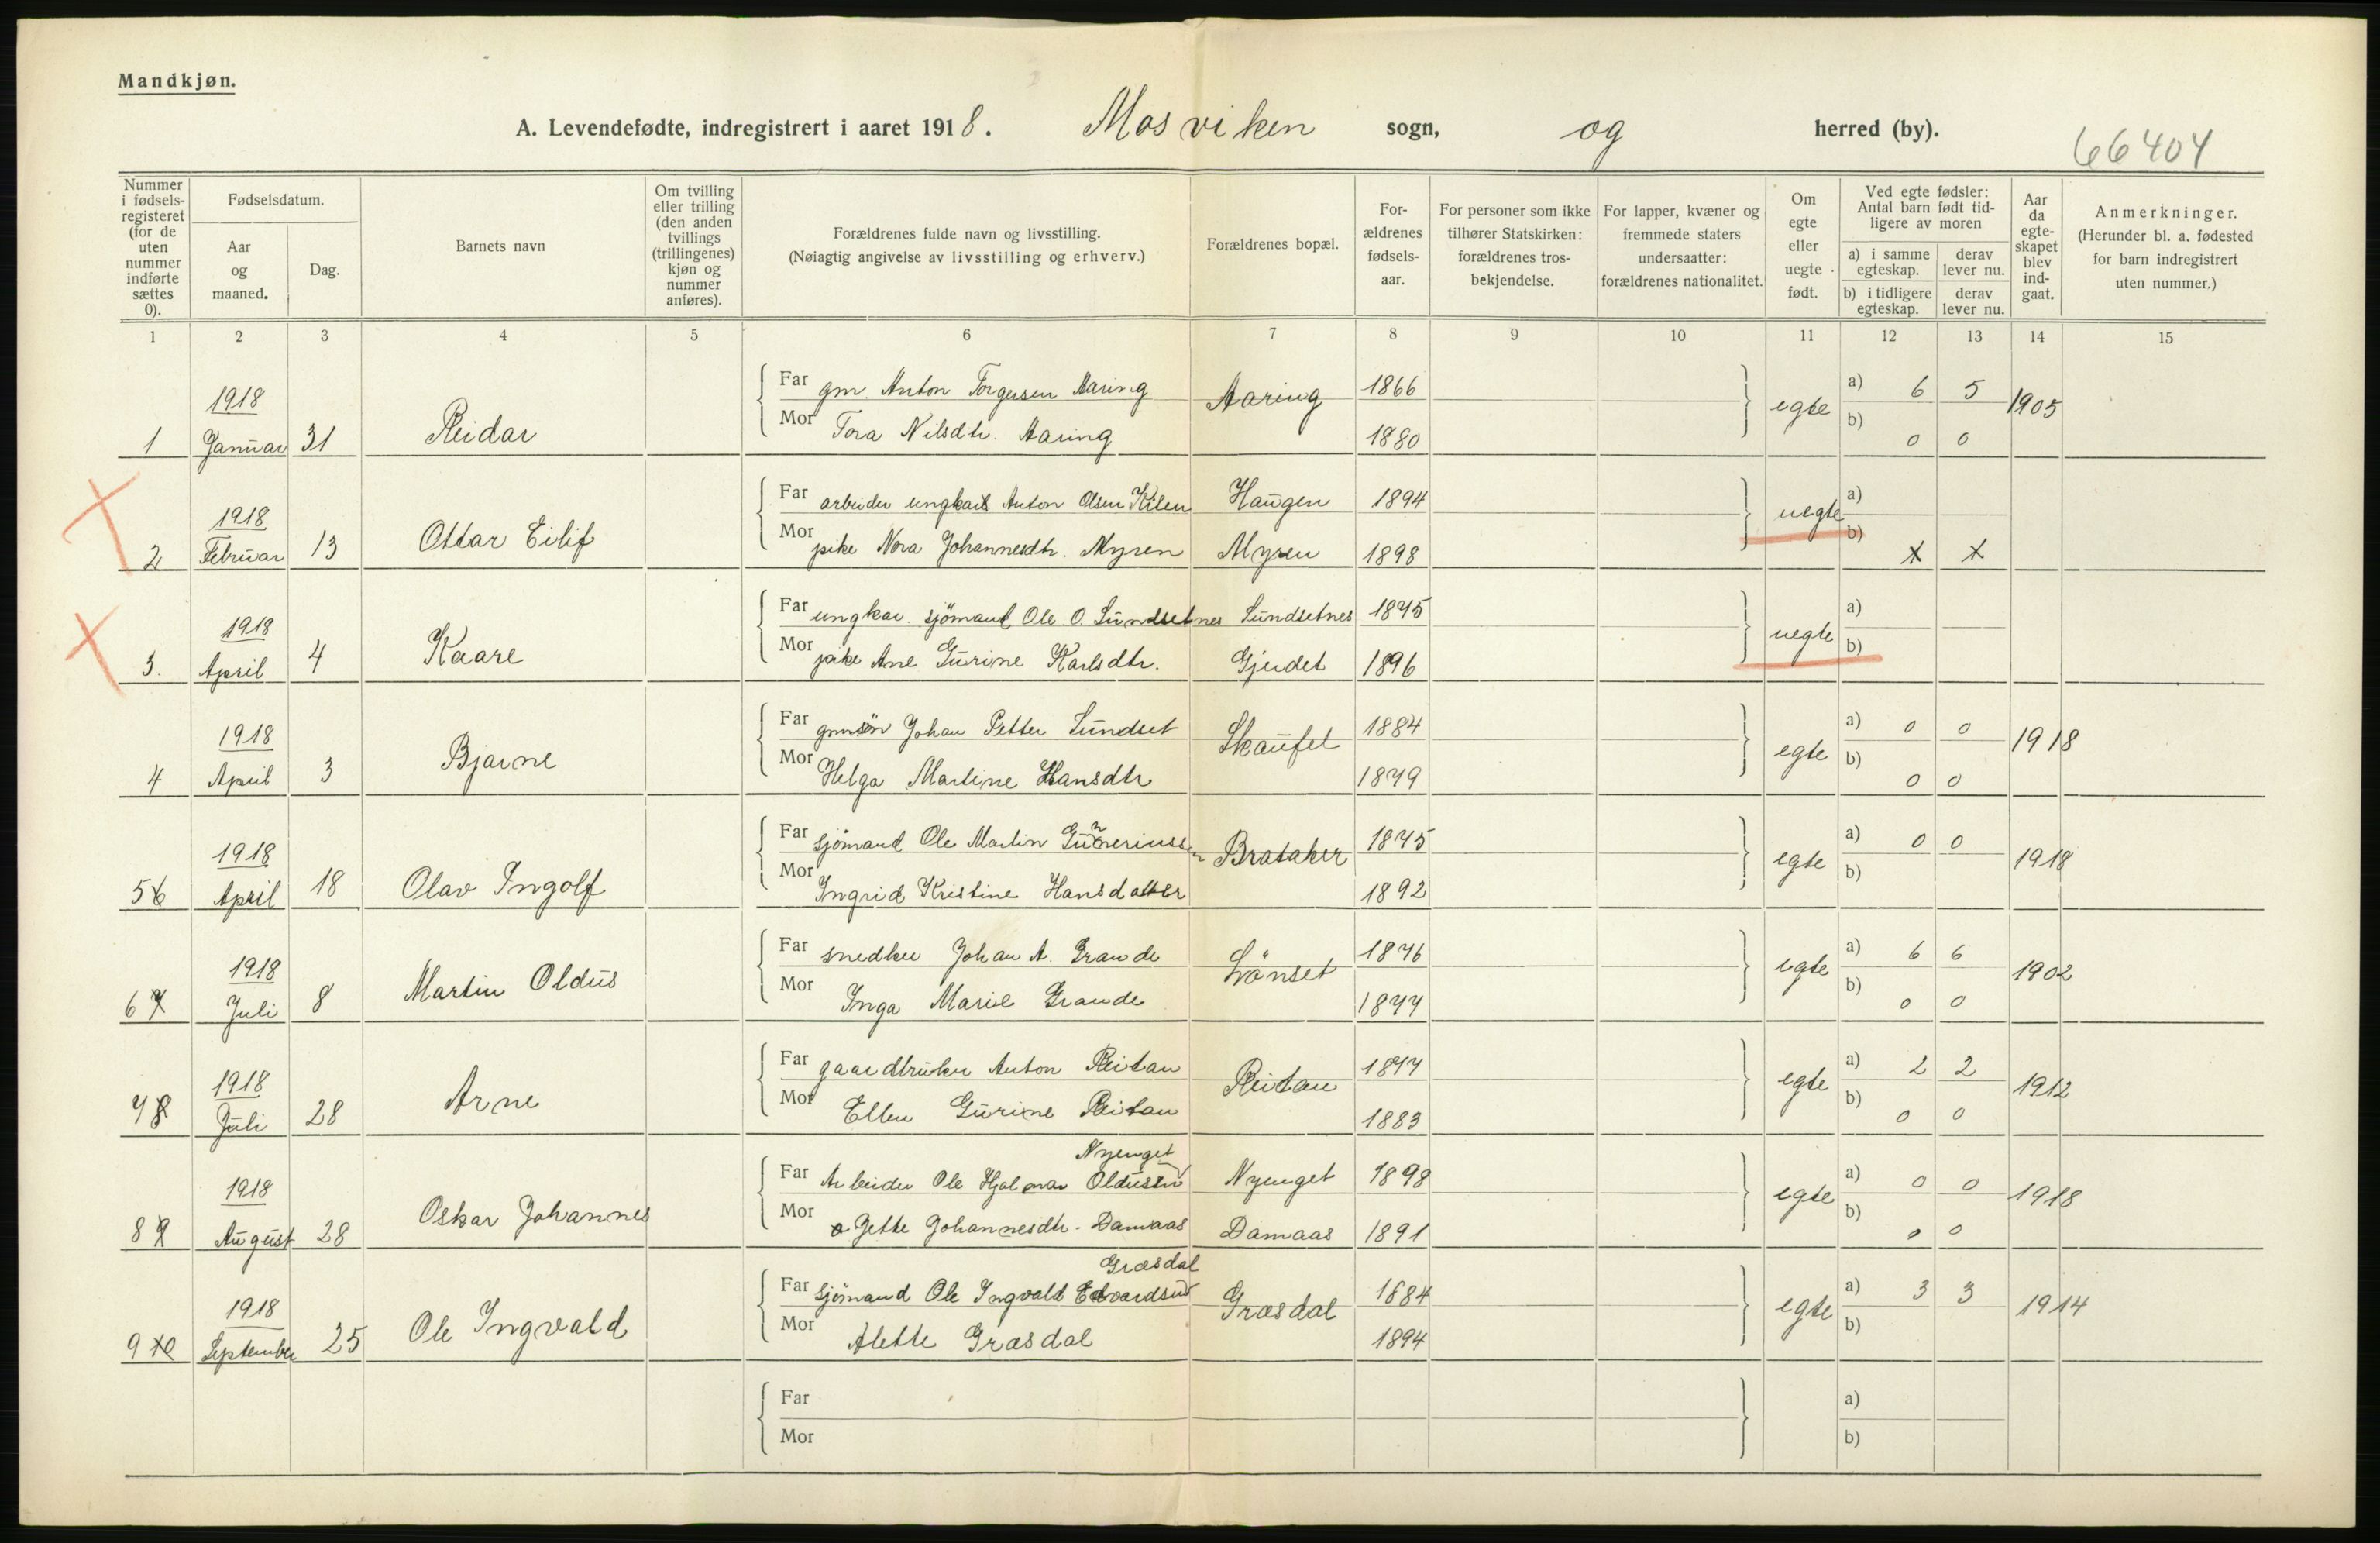 Mandkjøn.
A. Levendefødte, indregistrert i aaret 1918. Mosviken sogn, og herred (by).
66404
Nummer i fødselsregisteret (for de uten nummer indførte sættes 0).
Fødselsdatum.
Aar og maaned.
Dag.
Barnets navn
Om tvilling eller trilling (den anden tvillings (trillingenes) kjøn og nummer anføres).
Forældrenes fulde navn og livsstilling.
(Nøiagtig angivelse av livsstilling og erhverv.)
Forældrenes bopæl.
Forældrenes fødselsaar.
For personer som ikke tilhører Statskirken: forældrenes trosbekjendelse.
For lapper, kvæner og fremmede staters undersaatter: forældrenes nationalitet.
Om egte eller uegte født.
Ved egte fødsler: Antal barn født tidligere av moren
a) i samme egteskap.
derav lever nu.
b) i tidligere egteskap.
derav lever nu.
Aar da egteskapet blev indgaat.
Anmerkninger.
(Herunder bl. a. fødested for barn indregistrert uten nummer.)
1 2 3 4 5 6 7 8 9 10 11 12 13 14 15
1918
Far gm. Anton Torgersen Aaring Aaring 1866 a) 6 5
1 Januar 31 Reidar egte 1905
Mor Tora Nilsdtr. Aaring 1880 b) 0 0
1918
Far arbeider ungkarl Anton Olsen Kilen Haugen 1894 a)
2 Februar 13 Ottar Eilif uegte
Mor pike Nora Johannesdtr. Myren Myren 1898 b) x x
1918
Far ungkar. sjömand Ole O. Sundsetnes Sundsetnes 1895 a)
3. April 4 Kaare uegte
Mor pike Ane Gurine Karlsdtr. Gjerdet 1896 b)
1918
Far gmsön Johan Petter Sundset Skaufel 1884 a) 0 0
4 April 3 Bjarne egte 1918
Mor Helga Martine Hansdtr 1879 b) 0 0
1918
Far sjömand Ole Martin Gunneriussen Brataker 1875 a) 0 0
5 6 April 18 Olav Ingolf egte 1918
Mor Ingrid Kristine Hansdatter 1892 b)
1918
Far snedker Johan A. Grande Lönset 1876 a) 6 6
6 7 Juli 8 Martin Oldus egte 1902
Mor Inga Marie Grande 1877 b) 0 0
1918
Far gaardbruker Anton Reitan Reitan 1877 a) 2 2
7 8 Juli 28 Arne egte 1912
Mor Ellen Gurine Reitan 1883 b) 0 0
Nyenget
1918
Far Arbeider Ole Hjalmar Oldussen Nyenget 1898 a) 0 0
8 9 August 28 Oskar Johannes egte 1918
Mor Jette Johannesdtr. Damaas Damaas 1891 b) 0 0
Græsdal
1918
Far sjömand Ole Ingvald Edvardsen Græsdal 1884 a) 3 3
9 10 September 25 Ole Ingvald egte 1914
Mor Alette Græsdal 1894 b)
Far a)
Mor b)